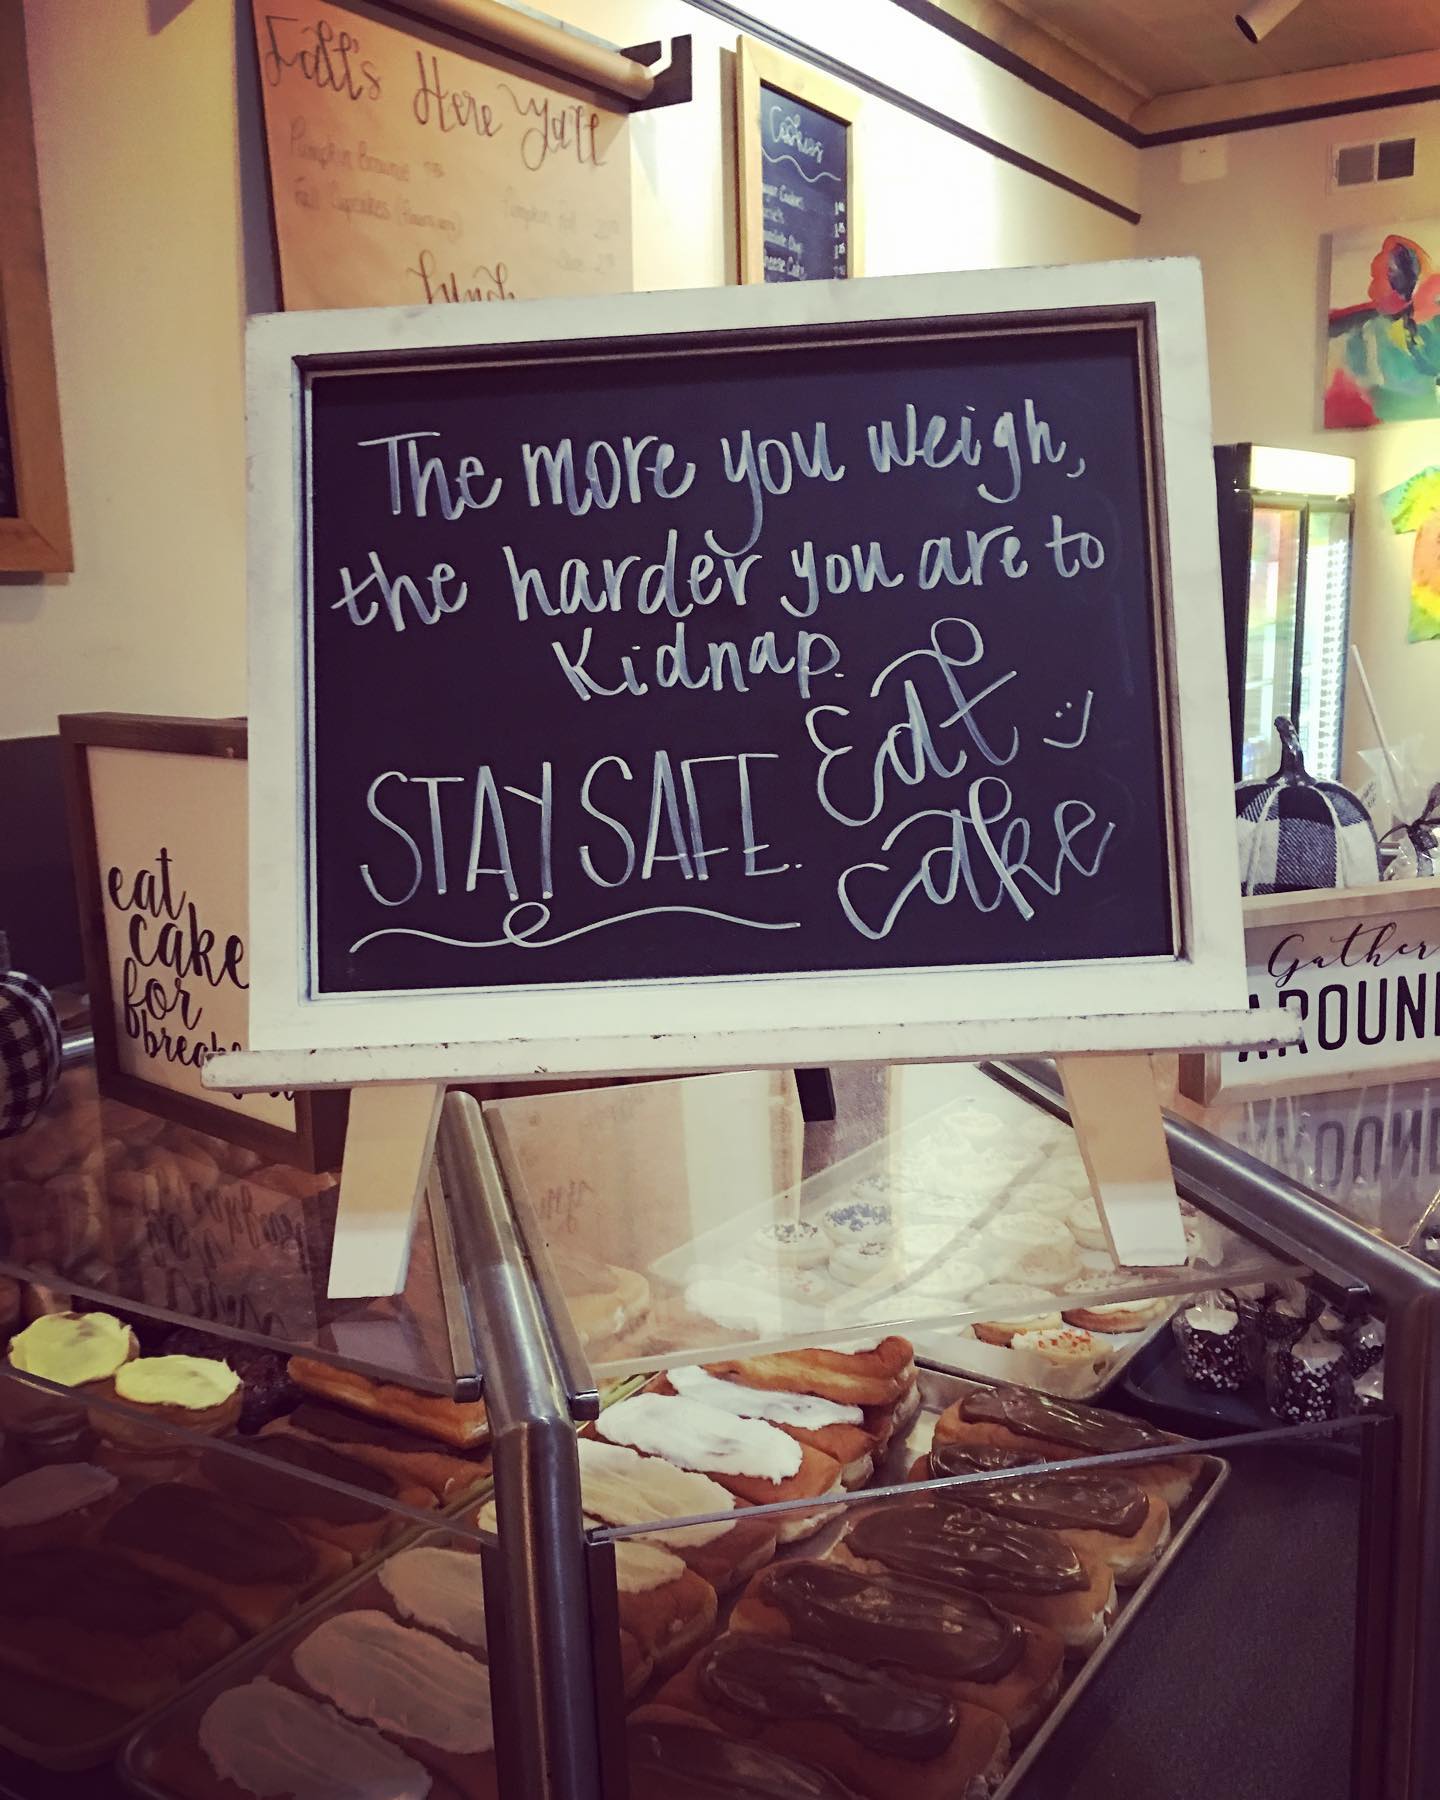 Fall's Here Ya'll
Pumpkin Brownie
Fall Cupcakes
Pumpkin Roll
Lunch
Cookies
The more you weigh,
the harder you are to
kidnap.
STAY SAFE.
Eat
cake
eat
cake
for
Gather
AROUN